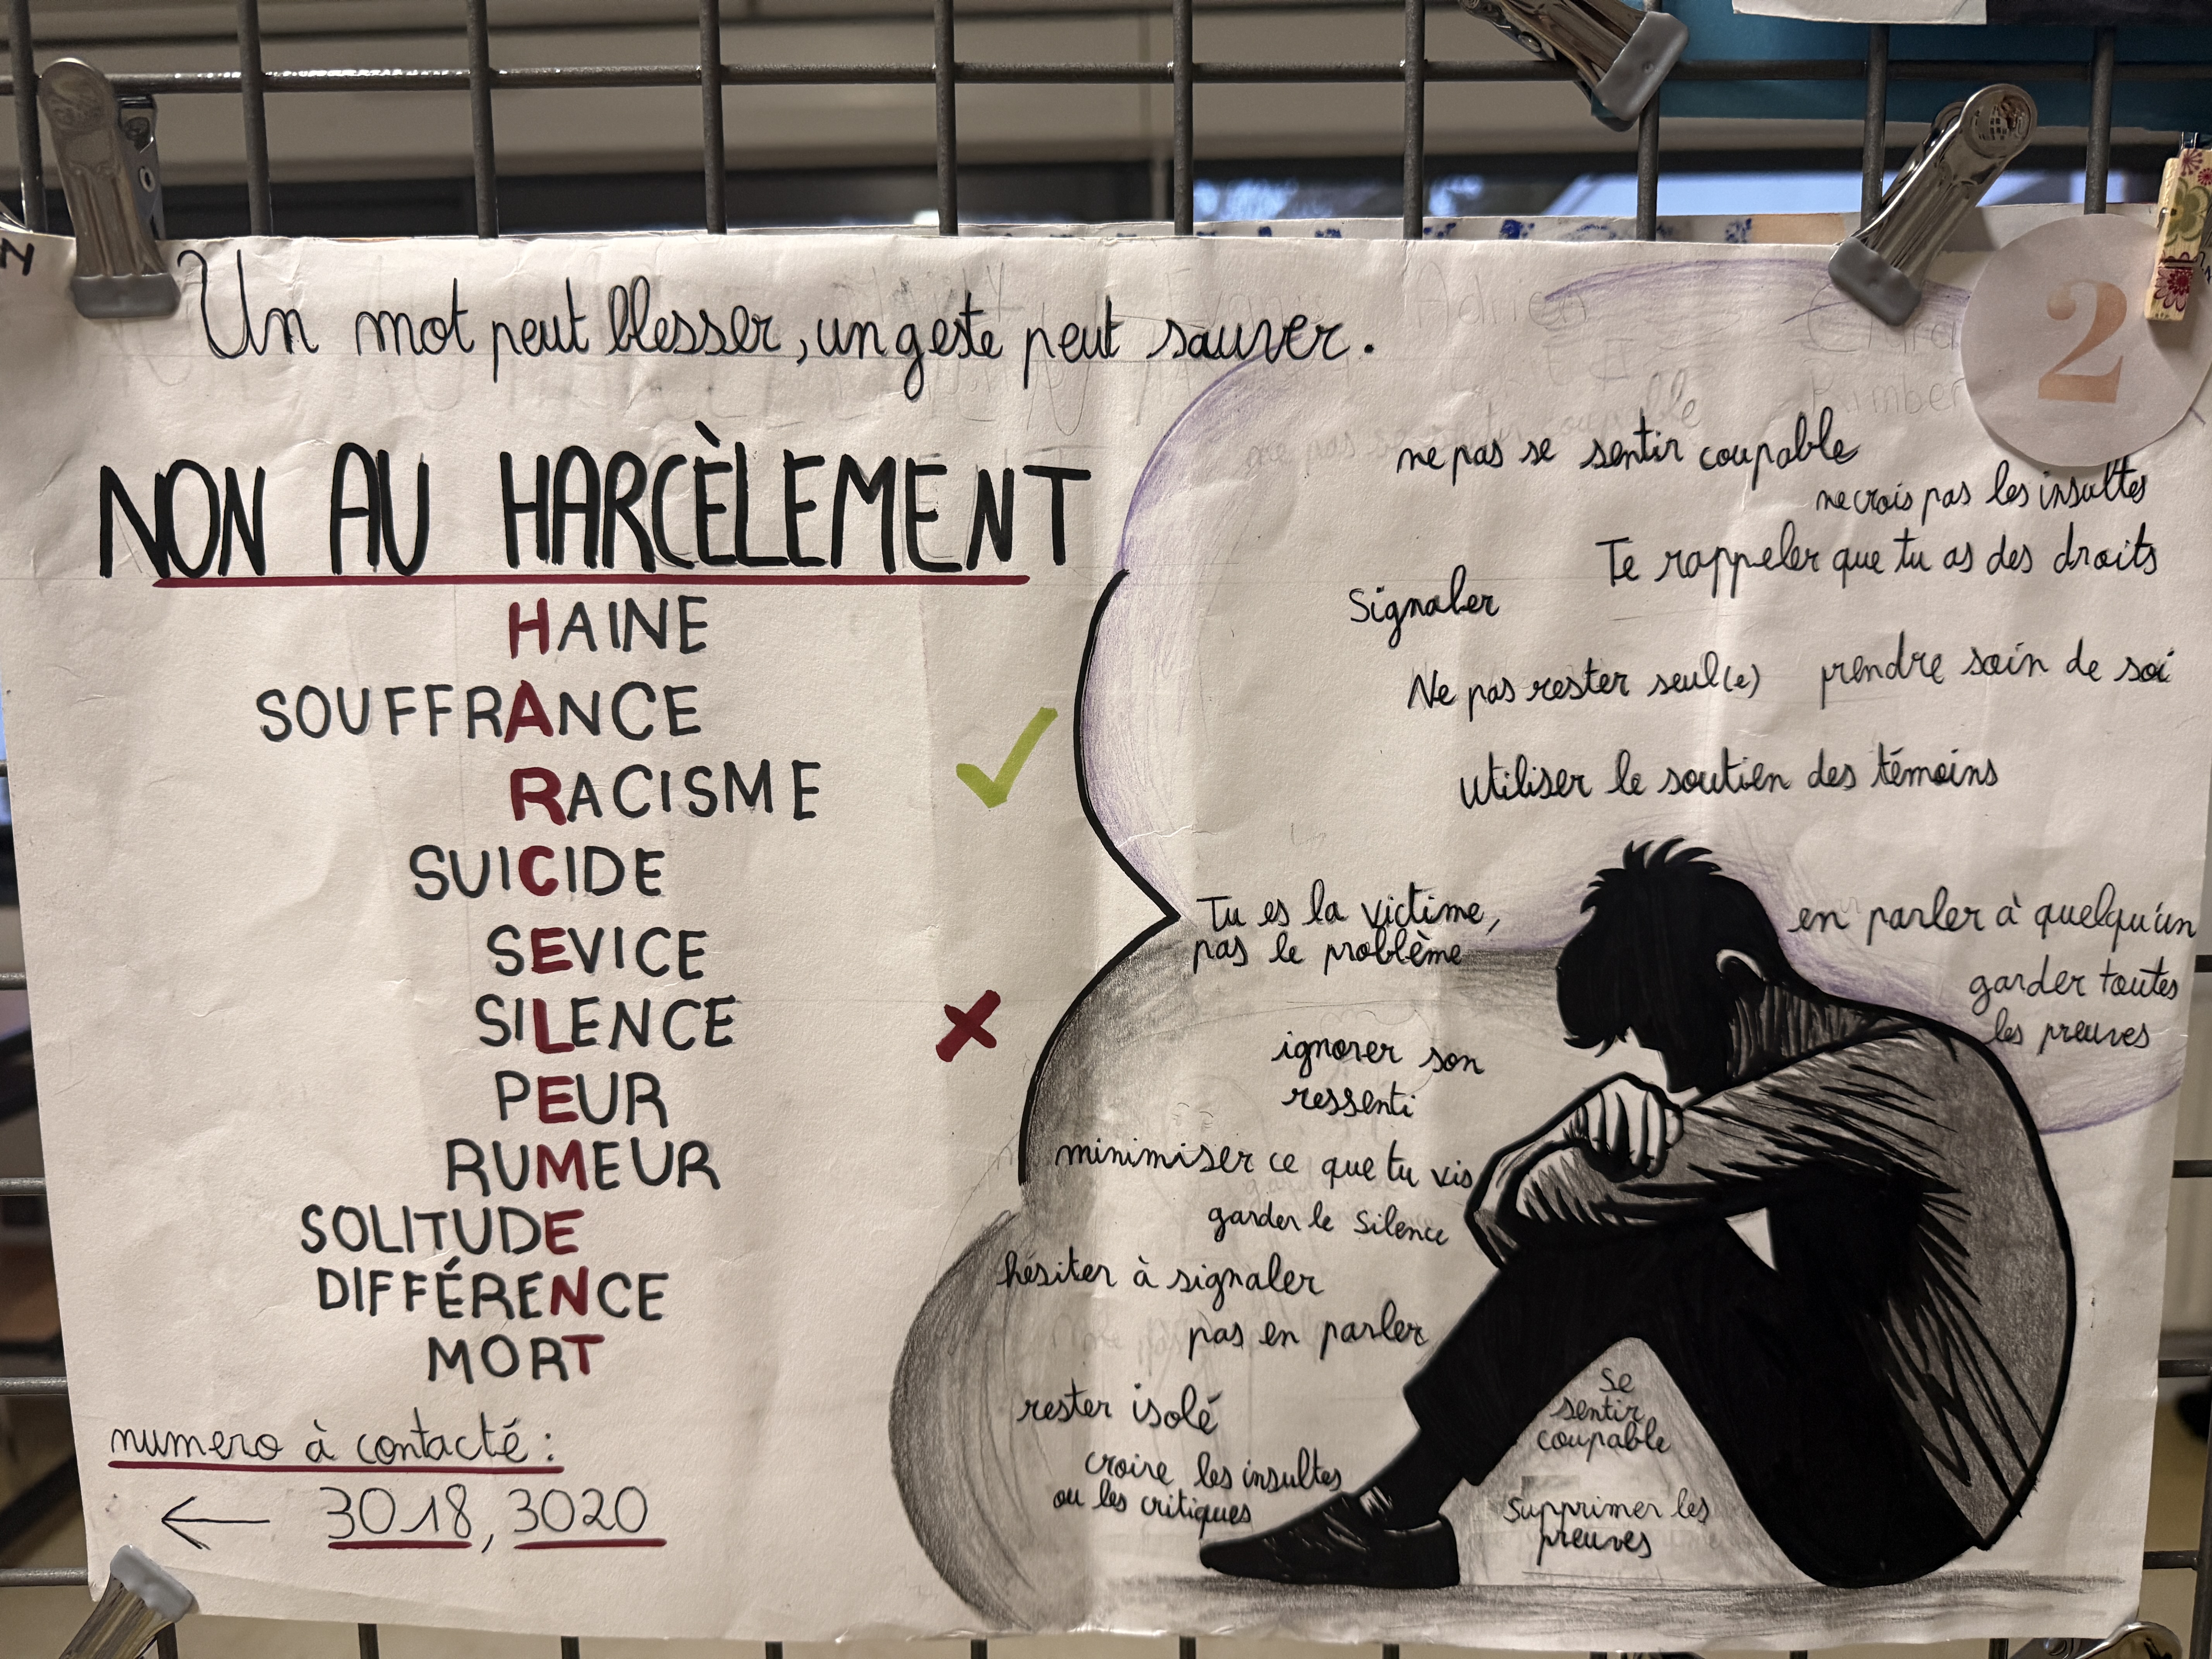 Un mot peut blesser, un geste peut sauver.
2
NON AU HARCÈLEMENT
HAINE
SOUFFRANCE
RACISME
SUICIDE
SEVICE
SILENCE
PEUR
RUMEUR
SOLITUDE
DIFFÉRENCE
MORT
numero à contacté :
3018, 3020
ne pas se sentir coupable
ne crois pas les insultes
Te rappeler que tu as des droits
Signaler
Ne pas rester seul(e)
prendre soin de soi
utiliser le soutien des témoins
Tu es la victime,
pas le problème
en parler à quelqu'un
garder toutes
les preuves
ignorer son
ressenti
minimiser ce que tu vis
garder le silence
hésiter à signaler
pas en parler
rester isolé
croire les insultes
ou les critiques
se
sentir
coupable
Supprimer les
preuves